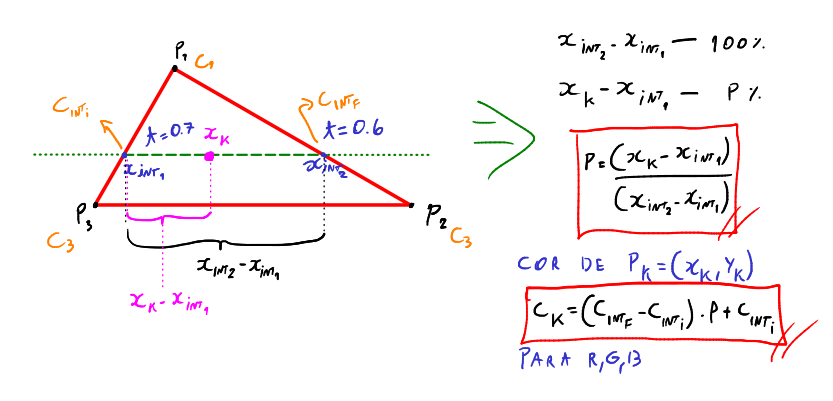 P₁ C₁
C_INTi
t=0.7
x_K
C_INTF
t=0.6
x_INT₁
x_INT₂
P₃
P₂
C₃
C₃
x_INT₂ - x_INT₁
x_K - x_INT₁
x_INT₂ - x_INT₁ — 100%
x_K - x_INT₁ — P%
P = (x_K - x_INT₁) / (x_INT₂ - x_INT₁)
COR DE P_K = (x_K, Y_K)
C_K = (C_INTF - C_INTi) . P + C_INTi
PARA R,G,B